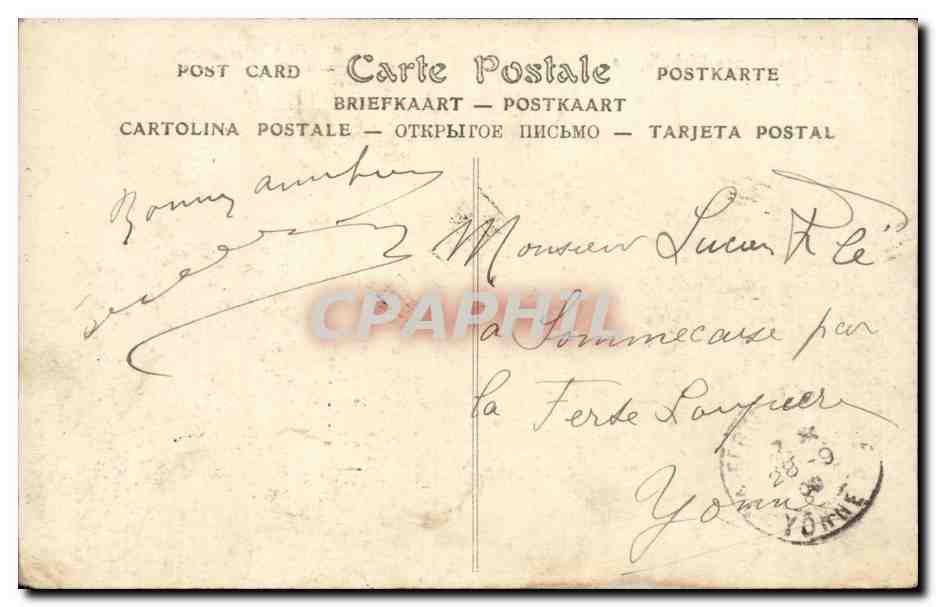 POST CARD Carte Postale POSTKARTE
BRIEFKAART — POSTKAART
CARTOLINA POSTALE — ОТКРЫГОЕ ПИСЬМО — TARJETA POSTAL
Bonne
Monsieur Lucien
à Sommecaise par
la Ferté Loupière
Yonne
CPAPHIL
28 -9
YONNE